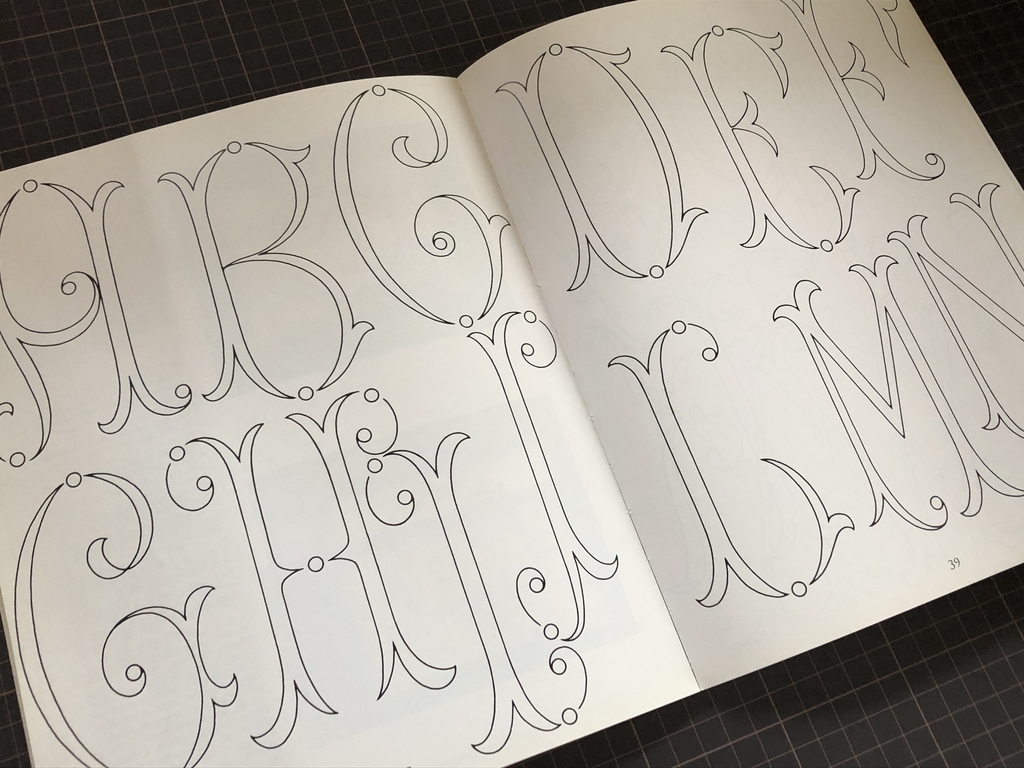 A B C
G H I J
D E F
L M N
39